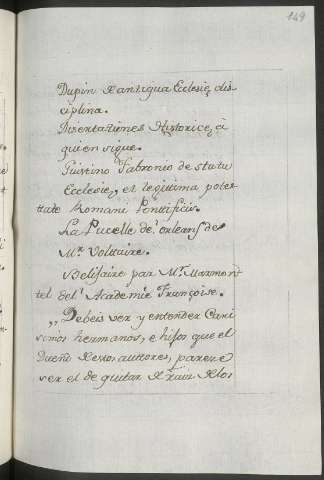 149
Dupin de antiqua Ecclesie dis-
ciplina.
Disertationes Historice, á
quien sigue.
Justino Febronio de statu
Ecclesie, et legitima potes-
tate Romani Pontificis.
La Pucelle de Orleans de
Mr. Voltaire.
Belisaire par Mr. Marmon-
tel del' Academie Françoise.
,, Debeis ver y entender Cari-
simos hermanos, e hijos que el
dueño de esos autores, parece
ser el de quitar de raiz de los